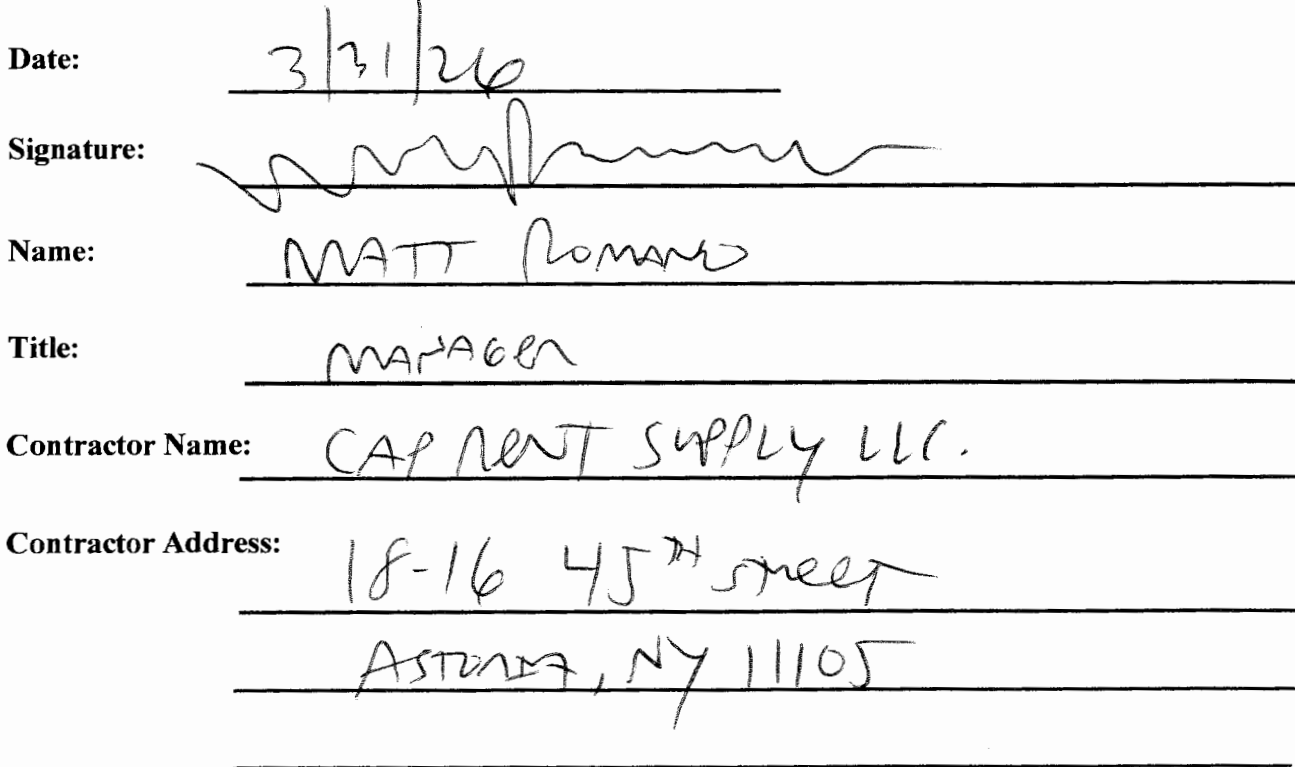 Date: 3/31/26
Signature:
Name: MATT ROMANO
Title: MANAGER
Contractor Name: CAP RENT SUPPLY LLC.
Contractor Address: 18-16 45TH STREET
ASTORIA, NY 11105